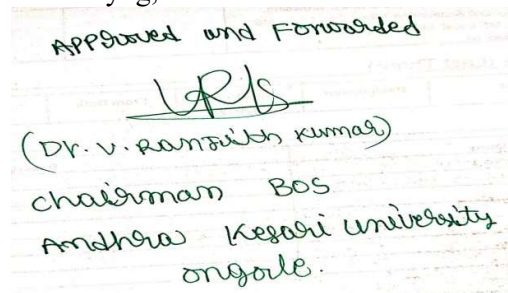 Approved and Forwarded
(Dr. V. Ranjith Kumar)
Chairman BOS
Andhra Kesari University
ongole.